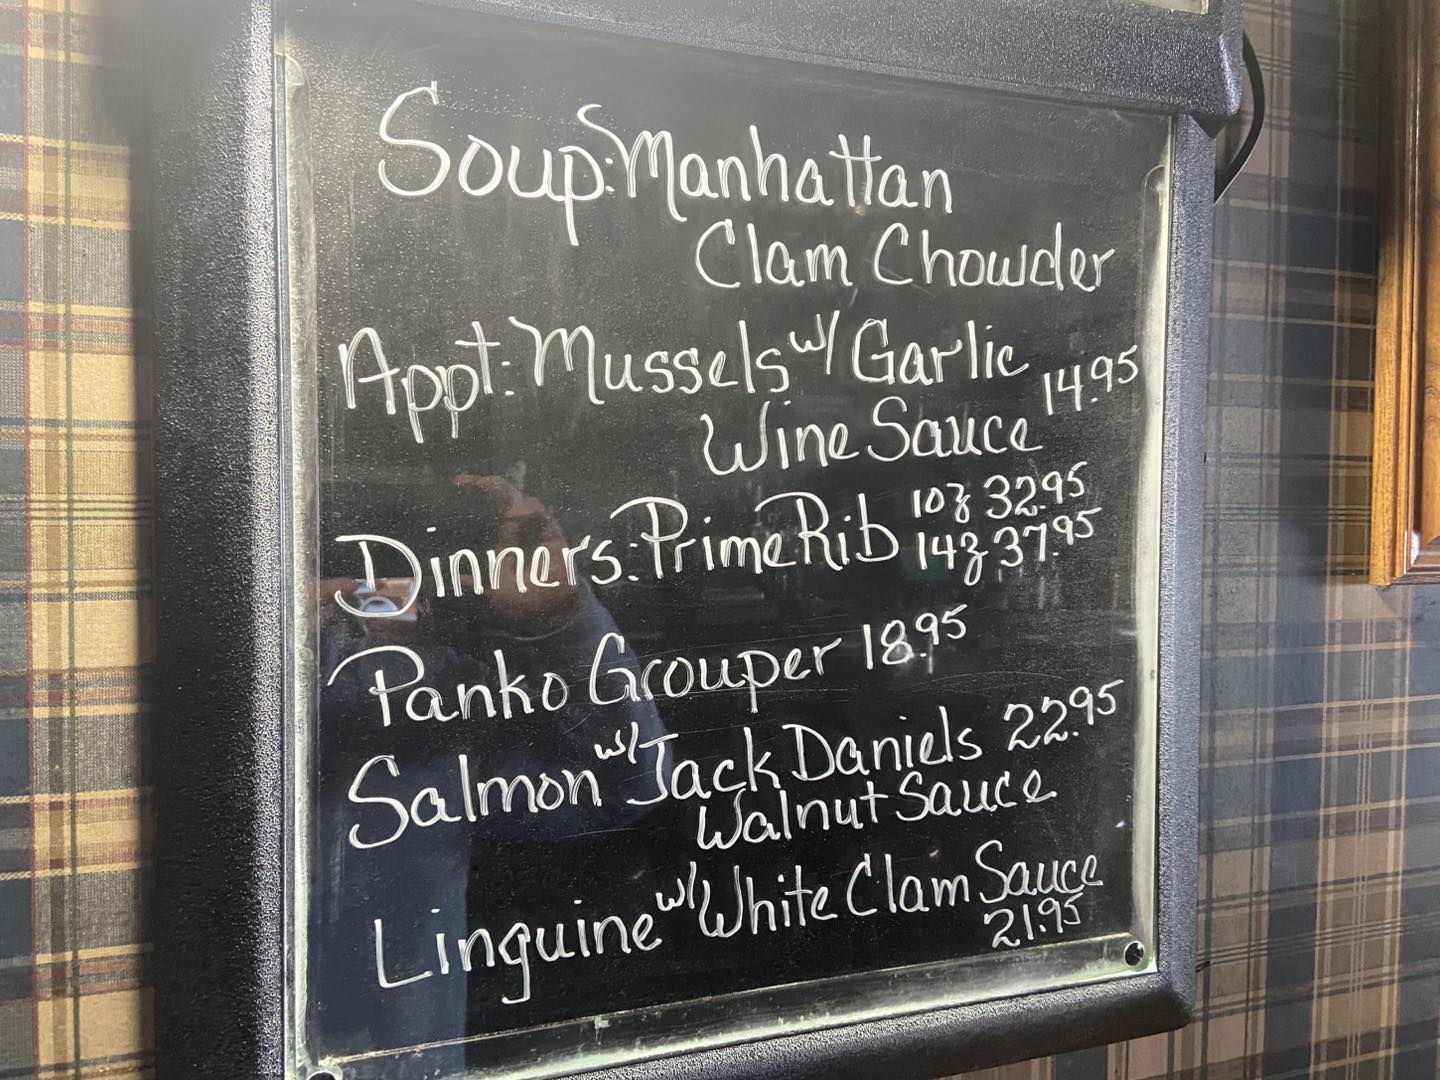 Soup: Manhattan
Clam Chowder
Appt: Mussels w/ Garlic
Wine Sauce 14.95
Dinners: Prime Rib 10z 32.95
14z 37.95
Panko Grouper 18.95
Salmon w/ Jack Daniels 22.95
Walnut Sauce
Linguine w/ White Clam Sauce
21.95